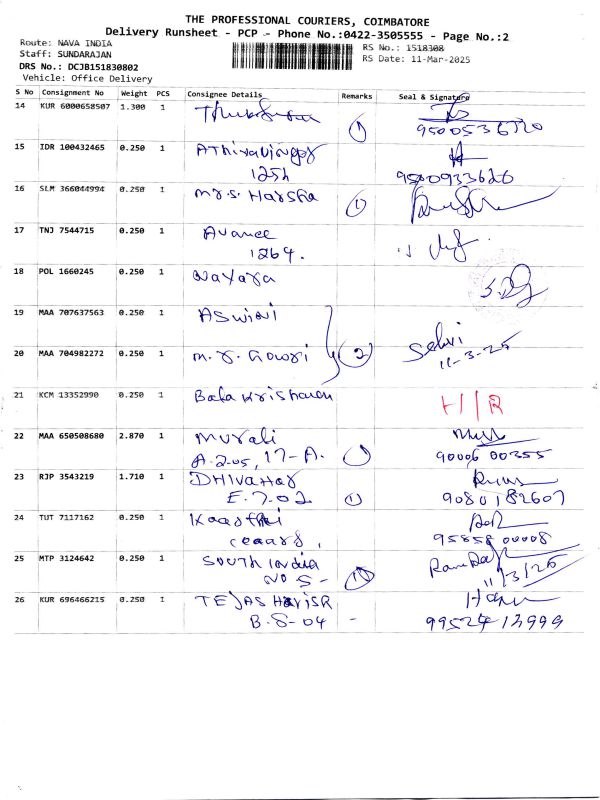 THE PROFESSIONAL COURIERS, COIMBATORE
Delivery Runsheet - PCP - Phone No.:0422-3505555 - Page No.:2
Route: NAVA INDIA
Staff: SUNDARAJAN
DRS No.: DCJB151830802
Vehicle: Office Delivery
RS No.: 1518308
RS Date: 11-Mar-2025
S No Consignment No Weight PCS Consignee Details Remarks Seal & Signature
14 KUR 6000658507 1.300 1 1
9500536720
15 IDR 100432465 0.250 1
1254 9500933626
16 SLM 366044994 0.250 1 Mrs. Harsha 1
17 TNJ 7544715 0.250 1 Avance
1264.
18 POL 1660245 0.250 1 Nayara
19 MAA 707637563 0.250 1 Aswini
20 MAA 704982272 0.250 1 M. R. Gowri 2 Selvi
11-3-25
21 KCM 13352990 0.250 1 Bala Krishanan H/R
22 MAA 650508680 2.870 1 Murali
A.205, 17-A. 1 90006 00355
23 RJP 3543219 1.710 1 DHIVAHAR
E.7.02 1 9080182607
24 TUT 7117162 0.250 1
95858 00008
25 MTP 3124642 0.250 1 South India
NO 5- 11/3/25
26 KUR 696466215 0.250 1 TEJAS HARISR
B.8-04 - 99524 13999